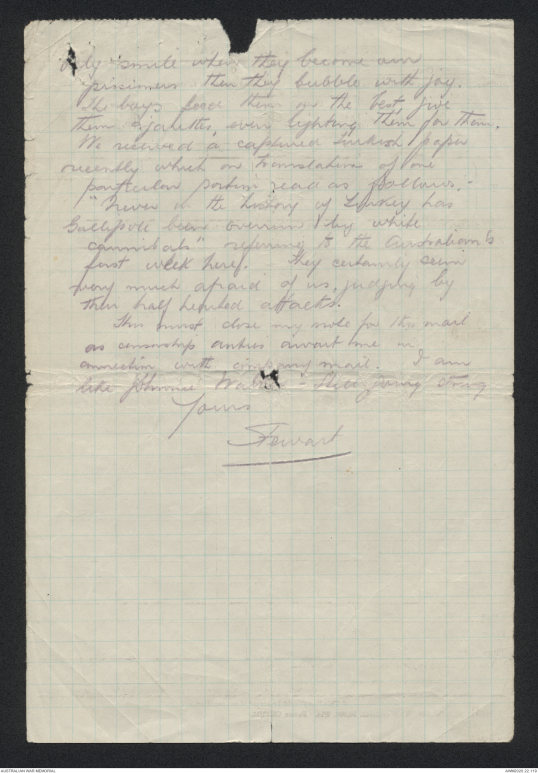 only smile when they become our
prisoners then they bubble with joy.
The boys feed them on the best, give
them cigarettes, even lighting them for them.
We received a captured Turkish paper
recently which on translation of one
particular portion read as follows,-
"Never in the history of Turkey has
Gallipoli been overrun by white
cannibals" referring to the Australian's
first week here. They certainly seem
very much afraid of us, judging by
their half hearted attacks.
This must close my note for this mail
as censorship duties await me in
connection with company mail. I am
like Johnnie Walker - Still going strong
Yours
Stewart
AUSTRALIAN WAR MEMORIAL